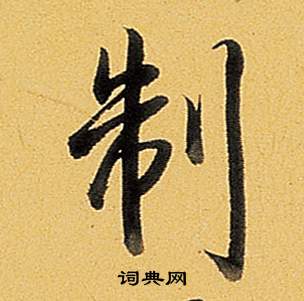 制
词典网